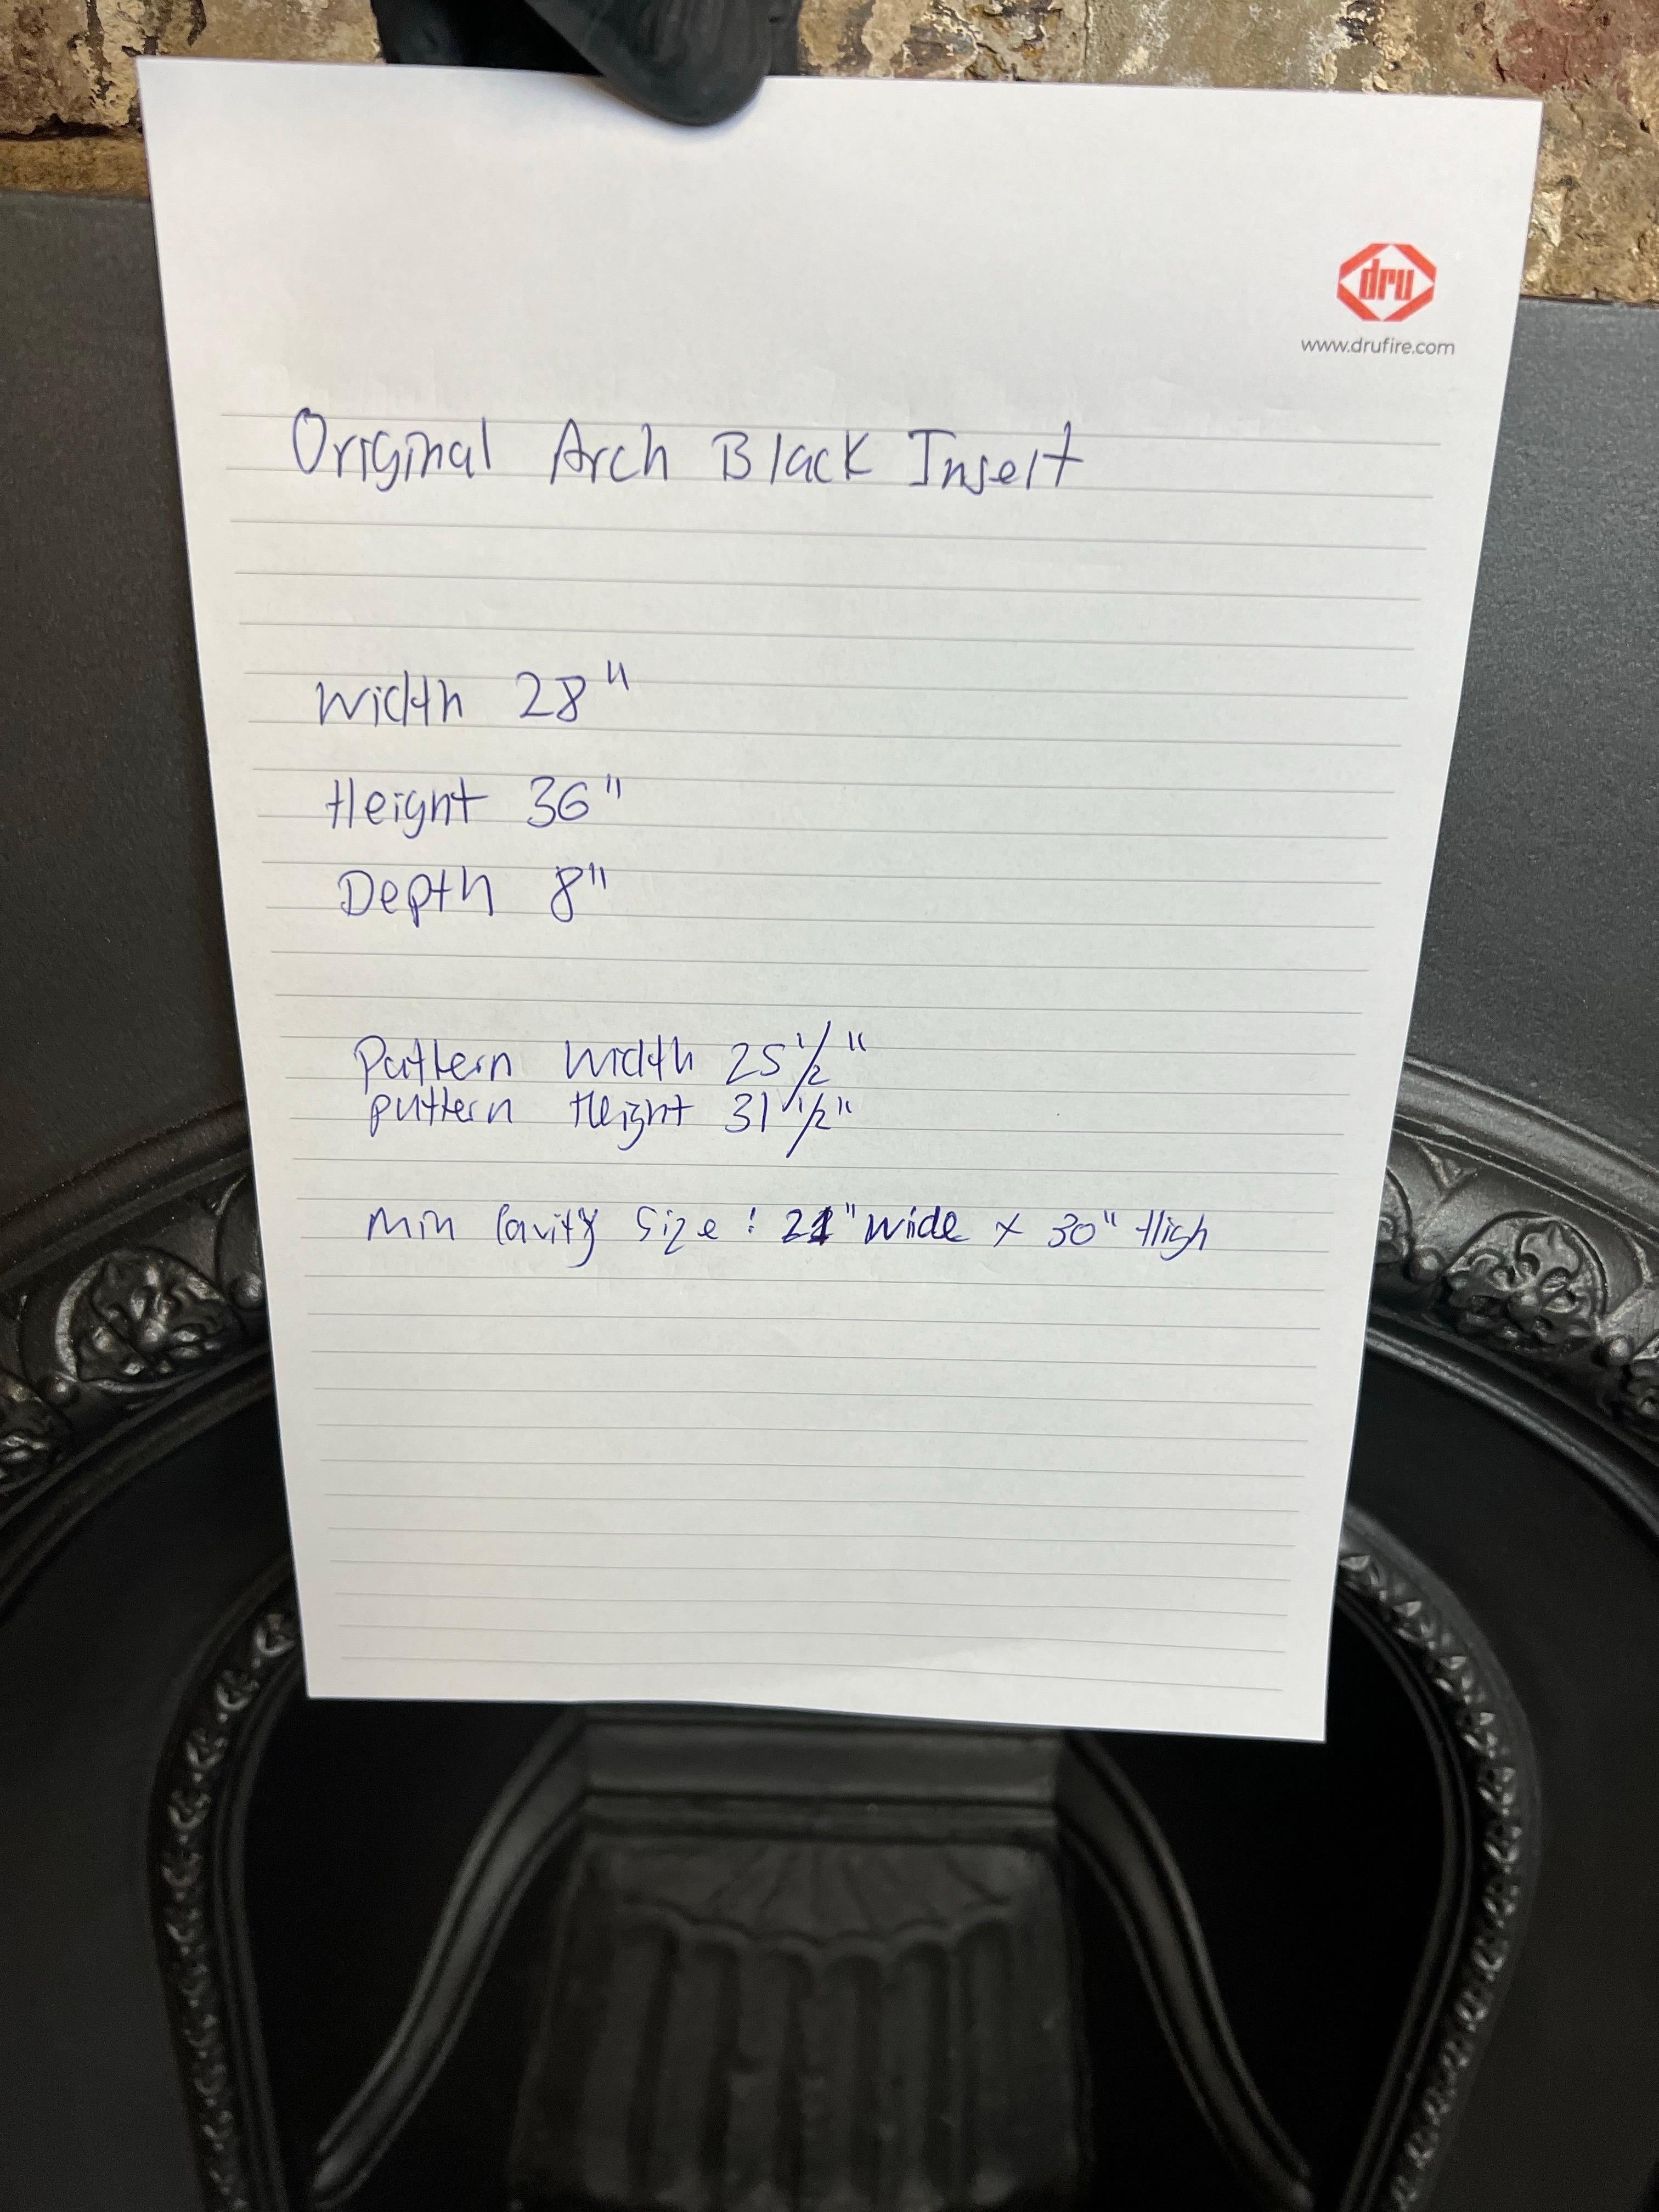 dru
www.drufire.com
Original Arch Black Insert
Width 28"
Height 36"
Depth 8"
Pattern Width 25 1/2"
pattern Height 31 1/2"
Min Cavity Size : 21" wide x 30" High